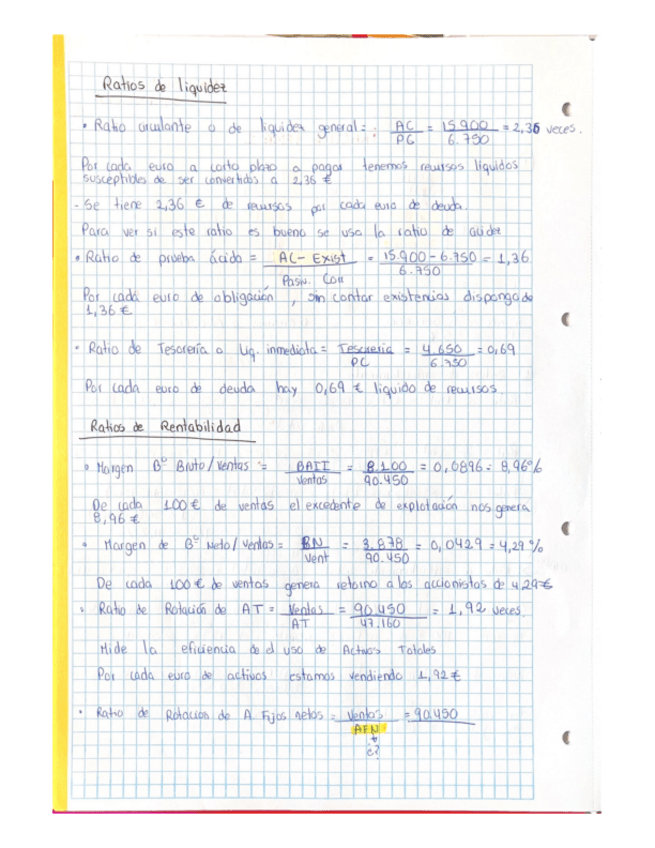 Ratios de liquidez
• Ratio circulante o de liquidez general = : AC/PC = 15.900/6.750 = 2,36 veces.
Por cada euro a corto plazo a pagar tenemos recursos líquidos
susceptibles de ser convertidos a 2,36 €
- Se tiene 2,36 € de recursos por cada euro de deuda.
Para ver si este ratio es bueno se usa la ratio de
• Ratio de prueba ácida = AC - Exist / Pasiv. Corr = 15.900 - 6.750 / 6.750 = 1,36
Por cada euro de obligación, sin contar existencias dispongo de
1,36 €
• Ratio de Tesorería o Liq. inmediata = Tesorería / PC = 4.650 / 6.750 = 0,69
Por cada euro de deuda hay 0,69 € líquido de recursos.
Ratios de Rentabilidad
• Margen Bº Bruto/Ventas = BAII / Ventas = 8.100 / 90.450 = 0,0896 = 8,96%
De cada 100 € de ventas el excedente de explotación nos genera
8,96 €
• Margen de Bº Neto/Ventas = BN / Vent = 3.878 / 90.450 = 0,0429 = 4,29%
De cada 100 € de ventas genera retorno a los accionistas de 4,29 €
• Ratio de Rotación de AT = Ventas / AT = 90.450 / 47.160 = 1,92 veces.
Mide la eficiencia de el uso de Activos Totales
Por cada euro de activos estamos vendiendo 1,92 €
• Ratio de Rotacion de A. Fijos netos = Ventas / AFN = 90.450
¿?